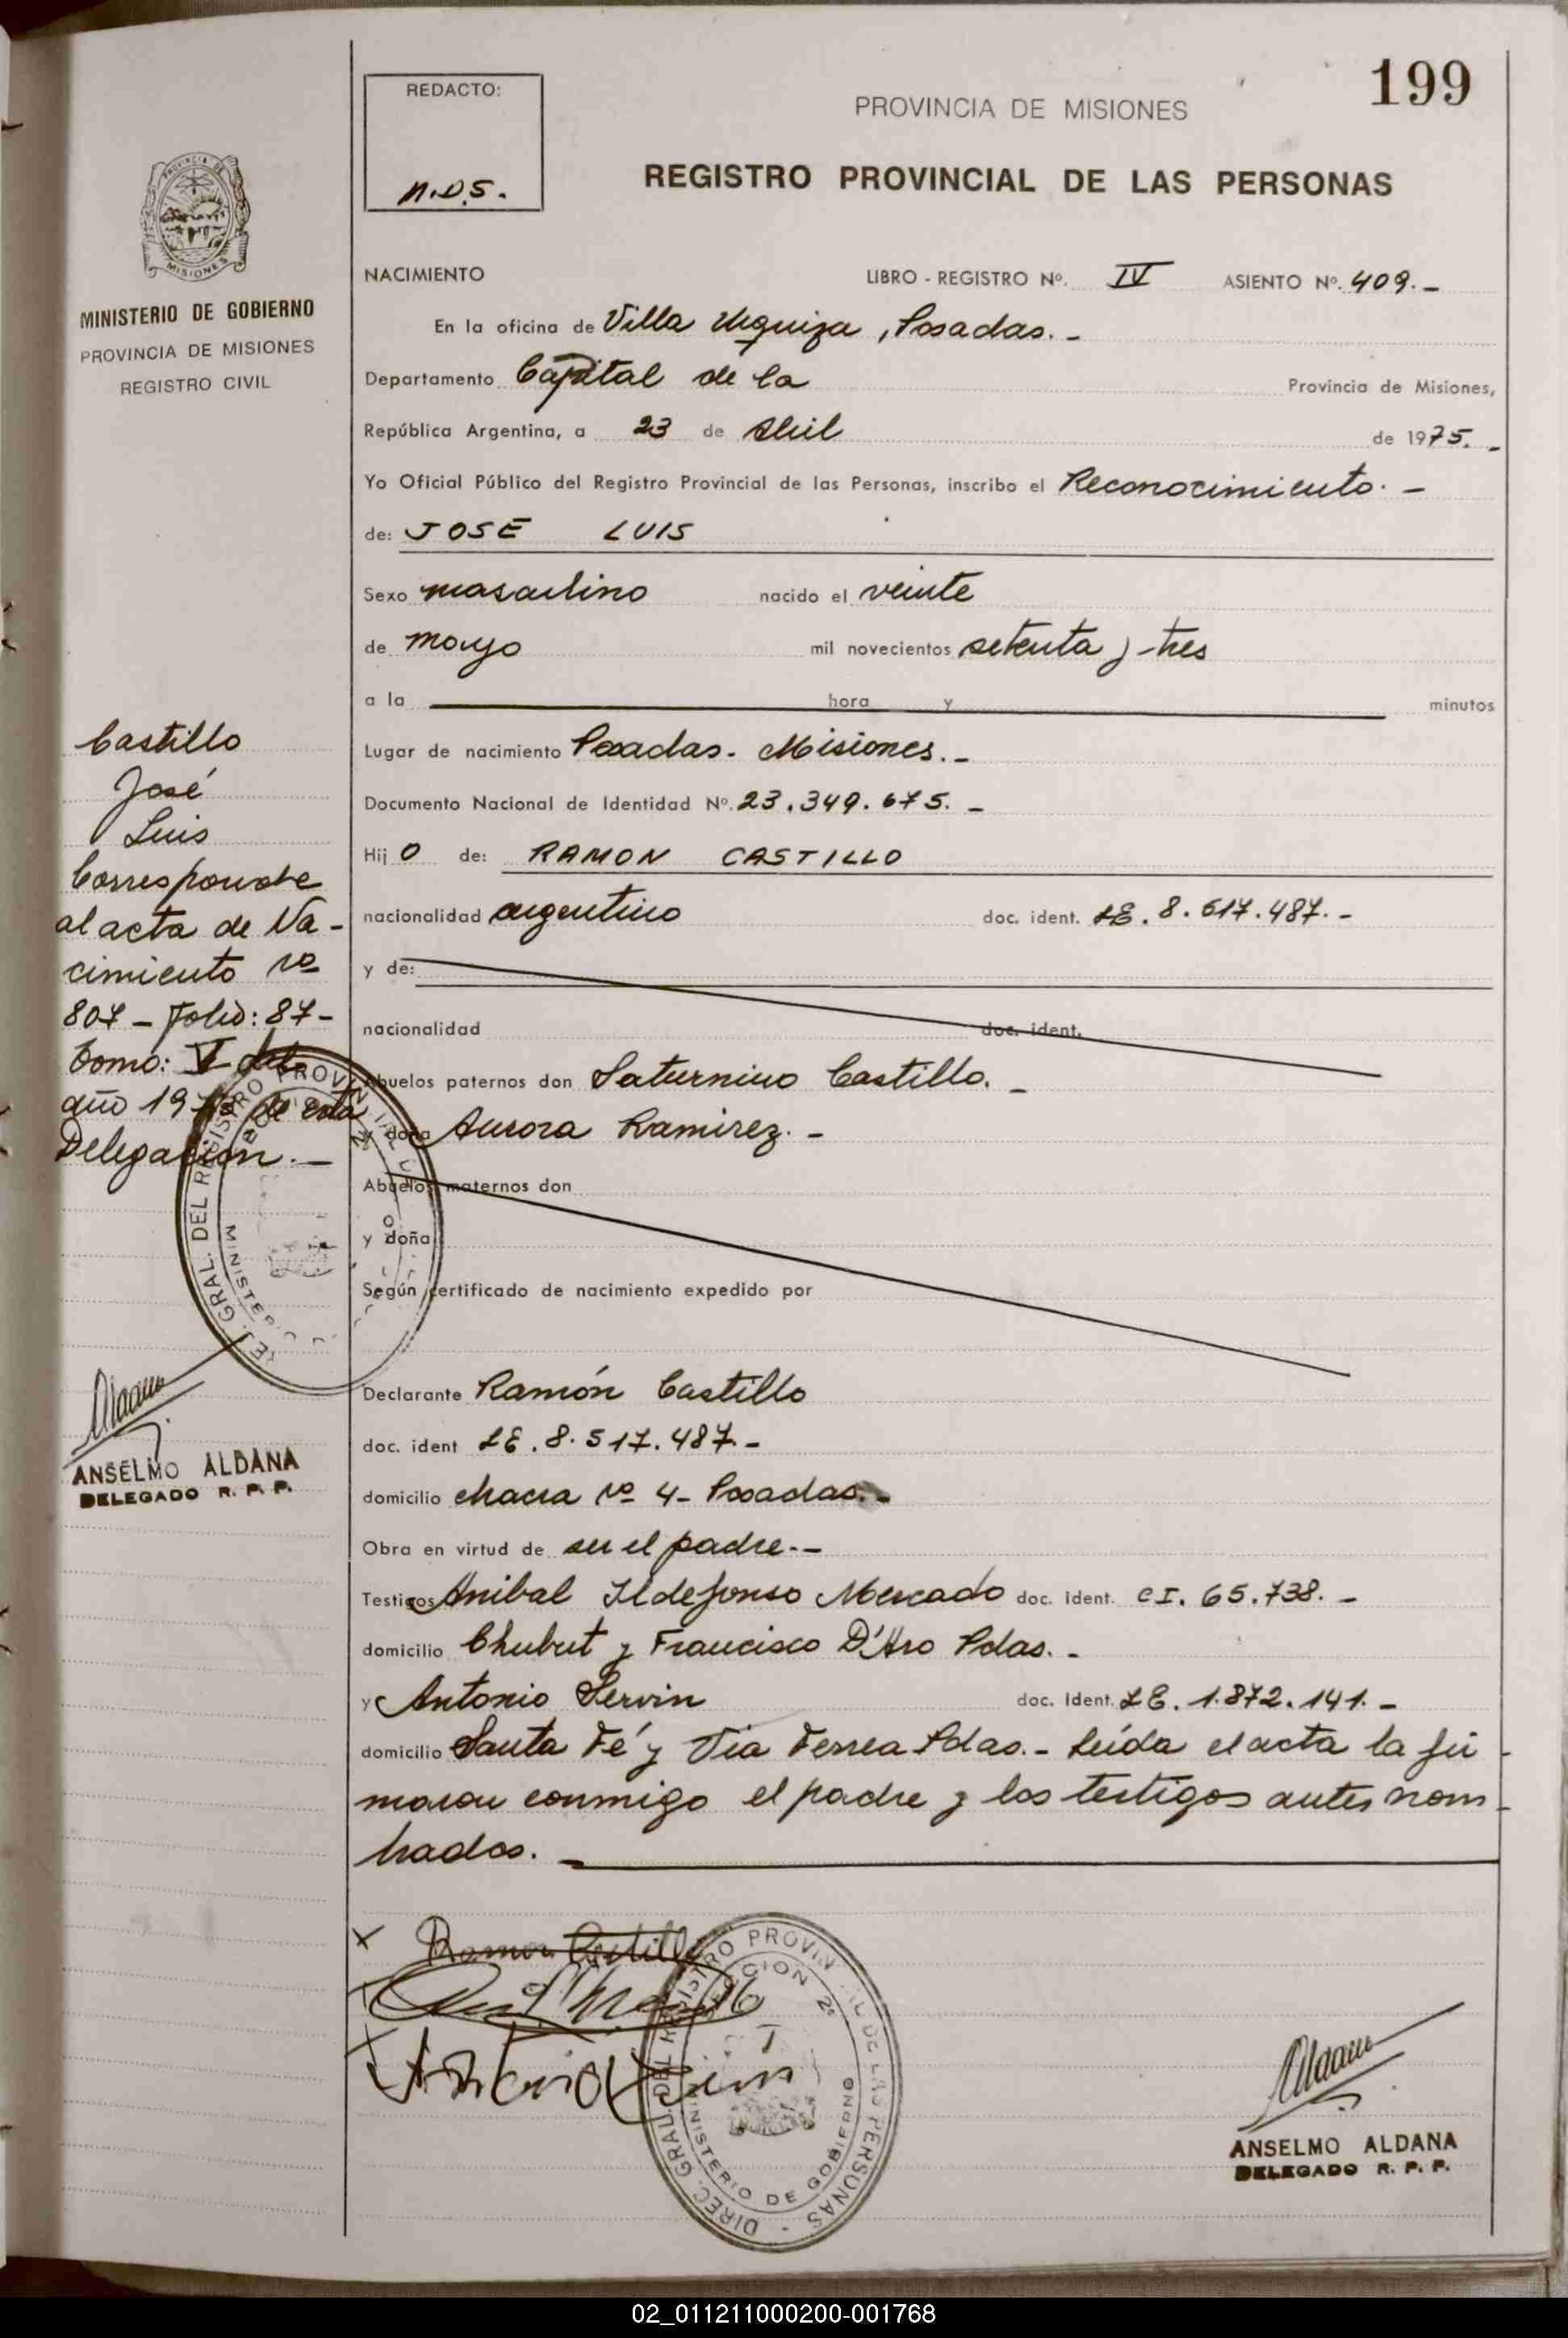 199
REDACTO:
N.D.S.
PROVINCIA DE MISIONES
REGISTRO PROVINCIAL DE LAS PERSONAS
MISIONES
MINISTERIO DE GOBIERNO
PROVINCIA DE MISIONES
REGISTRO CIVIL
NACIMIENTO LIBRO - REGISTRO Nº. IV ASIENTO Nº. 409.-
En la oficina de Villa Urquiza, Posadas.-
Departamento Capital de la Provincia de Misiones,
República Argentina, a 23 de Abril de 1975.-
Yo Oficial Público del Registro Provincial de las Personas, inscribo el Reconocimiento.-
de: JOSE LUIS
Sexo masculino nacido el veinte
de mayo mil novecientos setenta y tres
a la hora y minutos
Lugar de nacimiento Posadas. Misiones.-
Documento Nacional de Identidad Nº. 23.349.675.-
Hij o de: RAMON CASTILLO
nacionalidad argentino doc. ident. LE. 8.617.487.-
y de:
nacionalidad doc. ident.
Abuelos paternos don Saturnino Castillo.-
y doña Aurora Ramirez.-
Abuelos maternos don
y doña
Según certificado de nacimiento expedido por
Declarante Ramón Castillo
doc. ident LE. 8.517.487.-
domicilio chacra Nº 4- Posadas.-
Obra en virtud de ser el padre.-
Testigos Anibal Ildefonso Mercado doc. ident. CI. 65.738.-
domicilio Chubut y Francisco D'Aro Pdas.-
y Antonio Servin doc. Ident. LE. 1.872.141.-
domicilio Santa Fé y Via Ferrea Pdas.- Leída el acta la fir-
maron conmigo el padre y los testigos antes nom-
brados.-
Castillo
José
Luis
Corresponde
al acta de Na-
cimiento Nº
807 - Folio: 87-
Tomo: V del
año 1973 de esta
Delegación.-
ANSELMO ALDANA
DELEGADO R. P. P.
Ramon Castillo
Antonio Servin
DIREC. GRAL. DEL REGISTRO PROVINCIAL DE LAS PERSONAS -
MINISTERIO DE GOBIERNO
ANSELMO ALDANA
DELEGADO R. P. P.
02_011211000200-001768